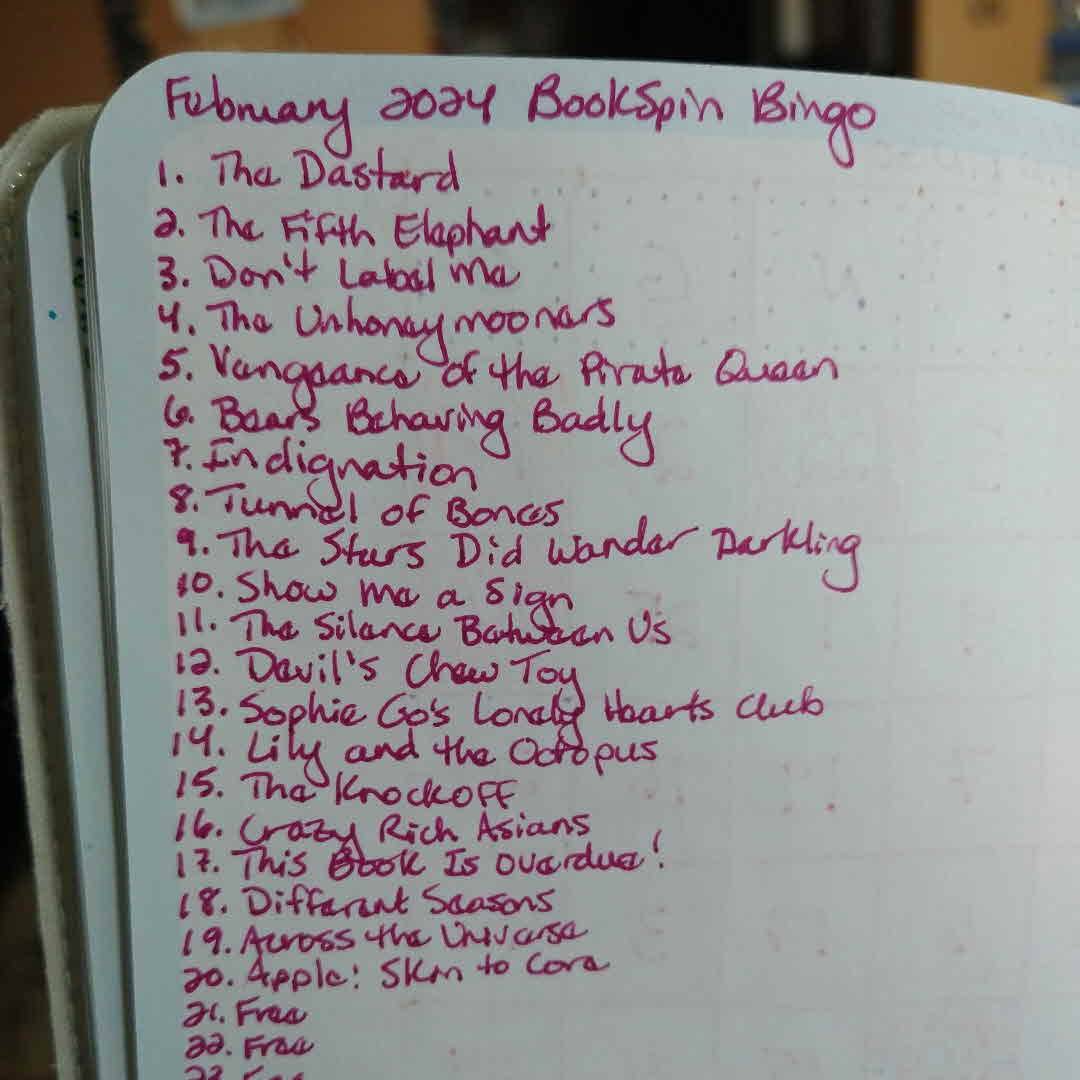 February 2024 BookSpin Bingo
1. The Dastard
2. The Fifth Elephant
3. Don't Label Me
4. The Unhoneymooners
5. Vengeance of the Pirate Queen
6. Bears Behaving Badly
7. Indignation
8. Tunnel of Bones
9. The Stars Did Wander Darkling
10. Show Me a Sign
11. The Silence Between Us
12. Devil's Chew Toy
13. Sophie Go's Lonely Hearts Club
14. Lily and the Octopus
15. The Knockoff
16. Crazy Rich Asians
17. This Book Is Overdue!
18. Different Seasons
19. Across the Universe
20. Apple: Skin to Core
21. Free
22. Free
23. Free